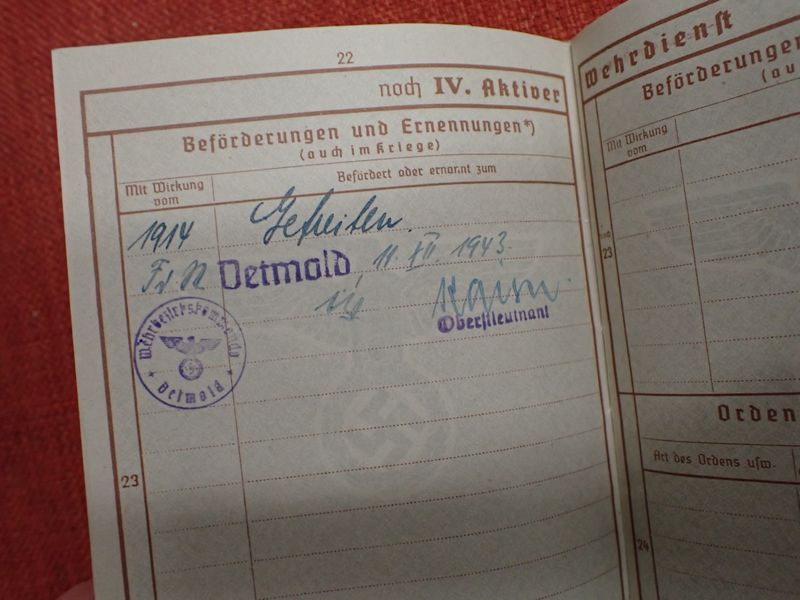 22
noch IV. Aktiver
Beförderungen und Ernennungen*)
(auch im Kriege)
Mit Wirkung
vom
Befördert oder ernannt zum
1914 Gefreiten.
Detmold, 11. XII. 1943.
Oberstleutnant
Wehrbezirkskommando
* Detmold *
23
Wehrdienst
Beförderungen
(au
Mit Wirkung
vom
23
Orden
Art des Ordens usw.
24